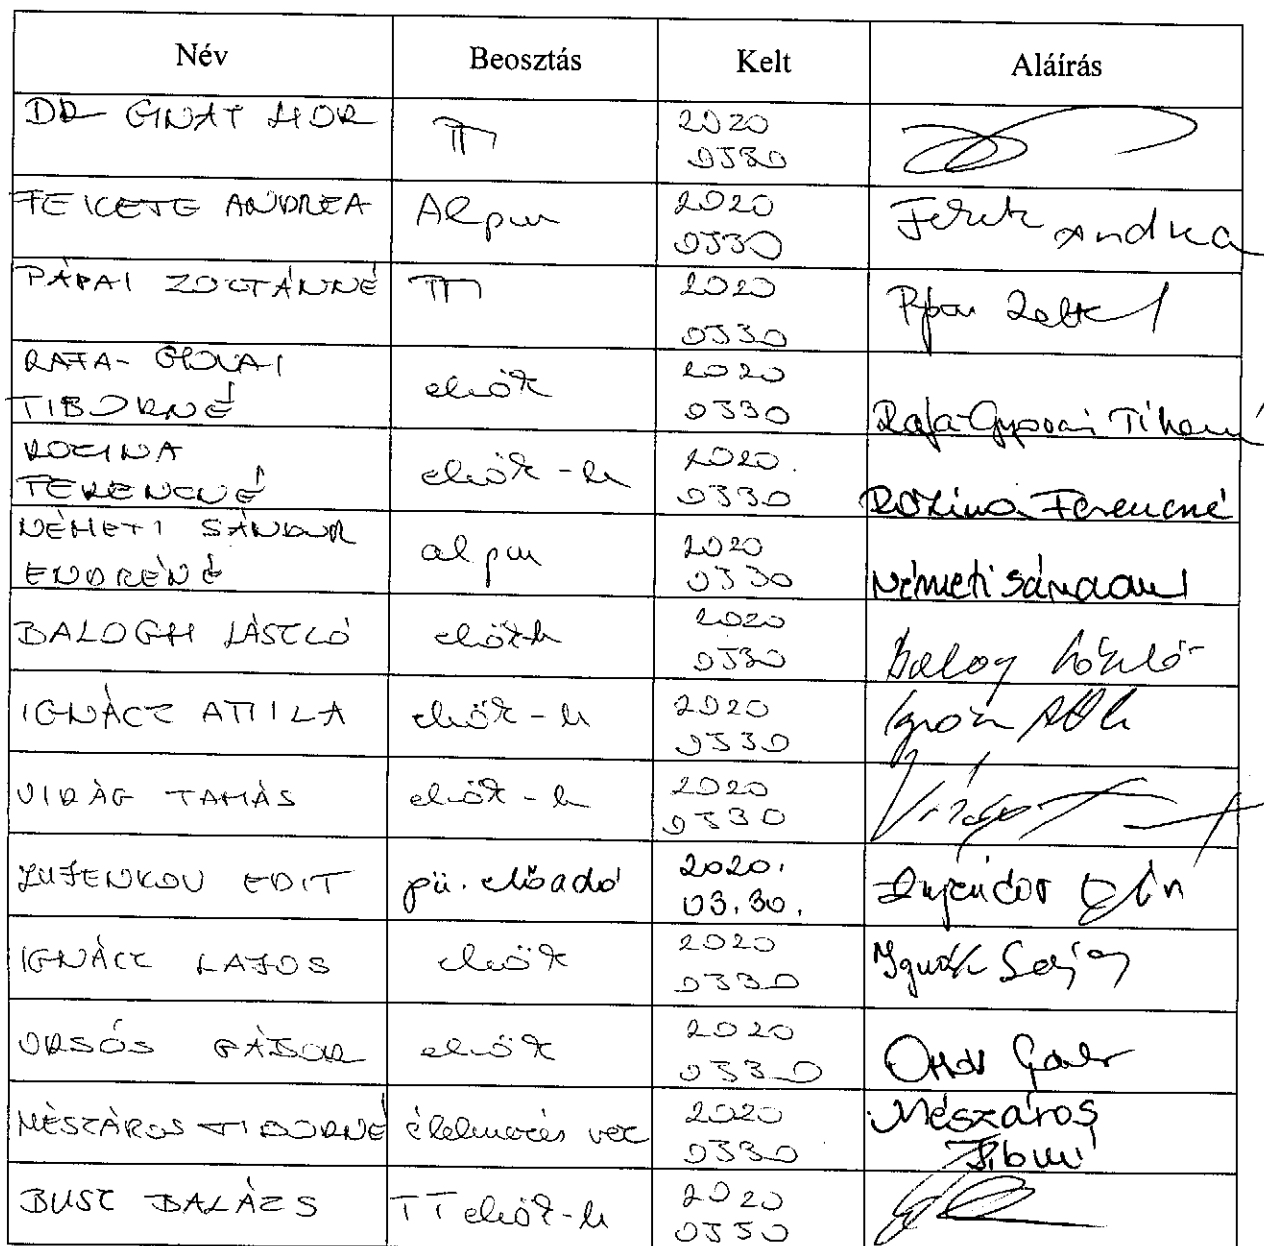 Név Beosztás Kelt Aláírás
DR 2020
0330
FEKETE ANDREA Alpm 2020
0330 Andrea
PÁPAI ZOLTÁNNÉ 2020
0330
RAFA-
TIBORNÉ elnök 2020
0330 Rafa-Gyovai Tiborné
ROZINA
FERENCNÉ elnök-h 2020.
0330 Rozina Ferencné
NÉMETI SÁNDOR
ENDRÉNÉ alpm 2020
0330 Németi Sándorné
BALOGH LÁSZLÓ 2020
0330 Balog László
IGNÁCZ ATTILA elnök-h 2020
0330 Ignácz Attila
VIRÁG TAMÁS elnök-h 2020
0330 Virág T
EDIT pü. előadó 2020.
03.30.
IGNÁCZ LAJOS elnök 2020
0330 Ignácz Lajos
ORSÓS GÁBOR elnök 2020
0330 Orsós Gábor
MÉSZÁROS TIBORNÉ élelmezés vez 2020
0330 Mészáros
Tiborné
BUSZ BALÁZS TT elnök-h 2020
0330